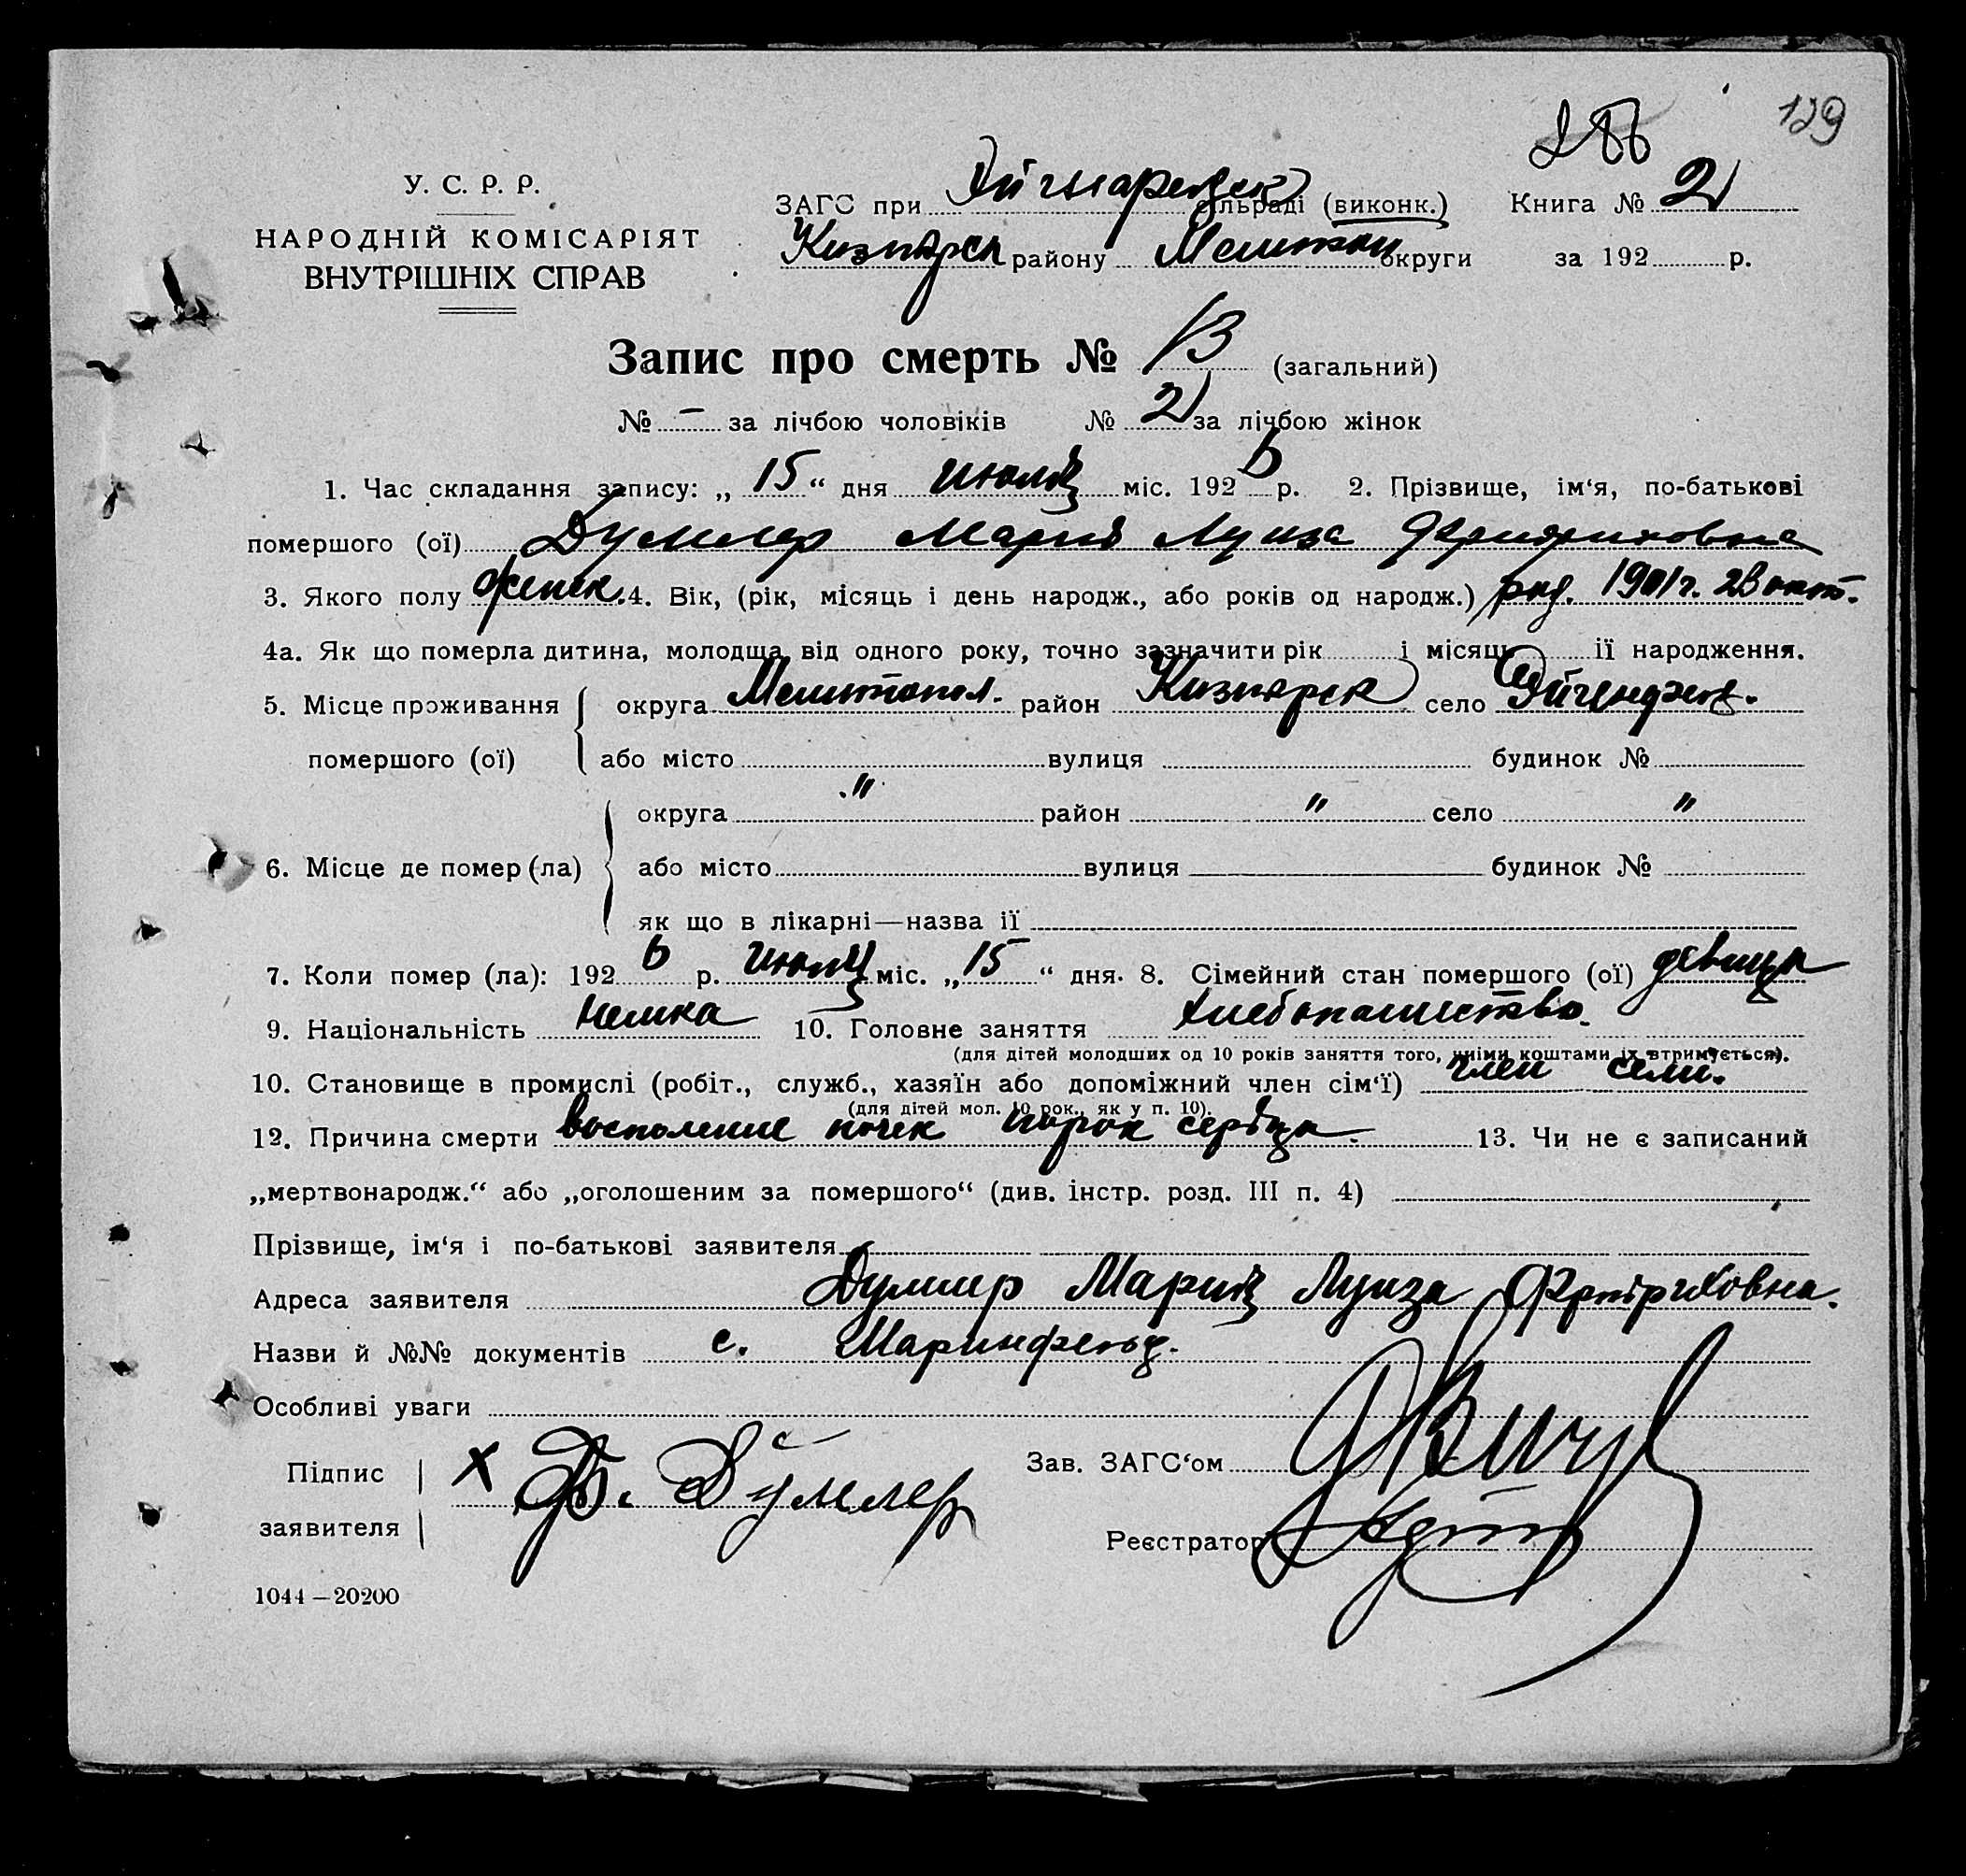 129
286
У. С. Р. Р.
НАРОДНІЙ КОМІСАРІЯТ
ВНУТРІШНІХ СПРАВ
ЗАГС при сільраді (виконк.) Книга № 2
району округи за 192 р.
Запис про смерть № 13 (загальний)
№ – за лічбою чоловіків № 2 за лічбою жінок
1. Час складання запису: „ 15 “ дня июля міс. 192 6 р. 2. Прізвище, ім‘я, по-батькові
помершого (ої) Думлер Мария Луиза Фридриховна
3. Якого полу женск. 4. Вік, (рік, місяць і день народж., або років од народж.) род. 1901 г. окт.
4а. Як що померла дитина, молодща від одного року, точно зазначити рік і місяць ії народження.
5. Місце проживання округа Мелитопол. район село
помершого (ої) або місто вулиця будинок №
округа " район " село "
6. Місце де помер (ла) або місто вулиця будинок №
як що в лікарні—назва ії
7. Коли помер (ла): 192 6 р. июля міс. „ 15 “ дня. 8. Сімейний стан помершого (ої) девица
9. Національність немка 10. Головне заняття хлебопашество.
(для дітей молодших од 10 років заняття того, чиїми коштами їх втримується).
10. Становище в промислі (робіт., служб., хазяїн або допоміжний член сім‘ї) член семи.
(для дітей мол. 10 рок., як у п. 10).
12. Причина смерти восполение почек порок сердца. 13. Чи не є записаний
„мертвонародж.“ або „оголошеним за помершого“ (див. інстр. розд. III п. 4)
Прізвище, ім‘я і по-батькові заявителя
Адреса заявителя Думлер Мария Луиза Фридриховна.
Назви й №№ документів с. Маринфельд.
Особливі уваги
Підпис заявителя х Фр. Думлер
Зав. ЗАГС‘ом
Реєстратор
1044 — 20200